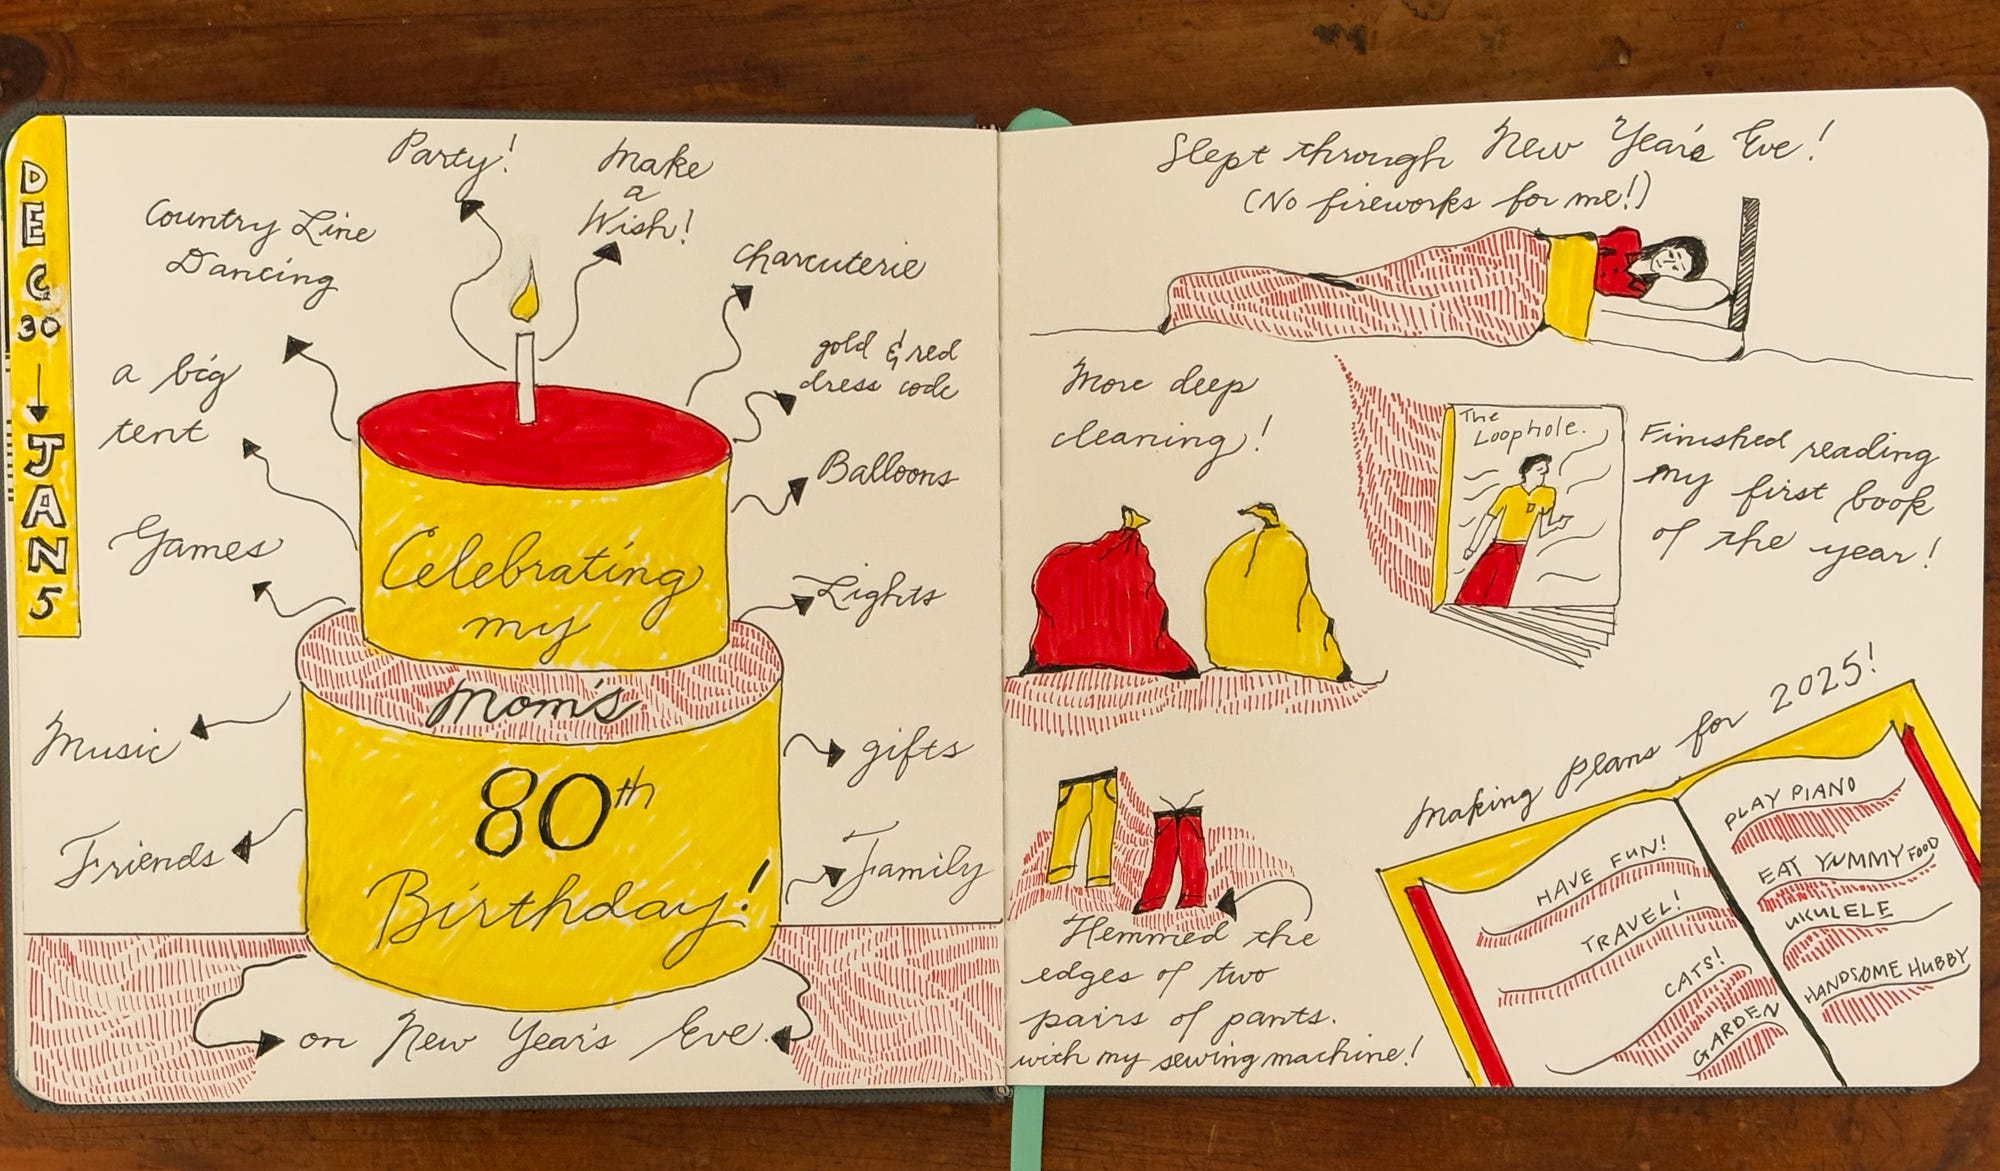 DEC
30
JAN
5
Party!
Make
a
Wish!
Country Line
Dancing
charcuterie
a big
tent
gold & red
dress code
Balloons
Games
Lights
Music
gifts
Friends
Family
Celebrating
my
Mom's
80th
Birthday!
on New Year's Eve.
Slept through New Year's Eve!
(No fireworks for me!)
More deep
cleaning!
The
Loophole.
Finished reading
my first book
of the year!
Hemmed the
edges of two
pairs of pants.
with my sewing machine!
Making plans for 2025!
HAVE FUN!
TRAVEL!
CATS!
GARDEN
PLAY PIANO
EAT YUMMY FOOD
UKULELE
HANDSOME HUBBY